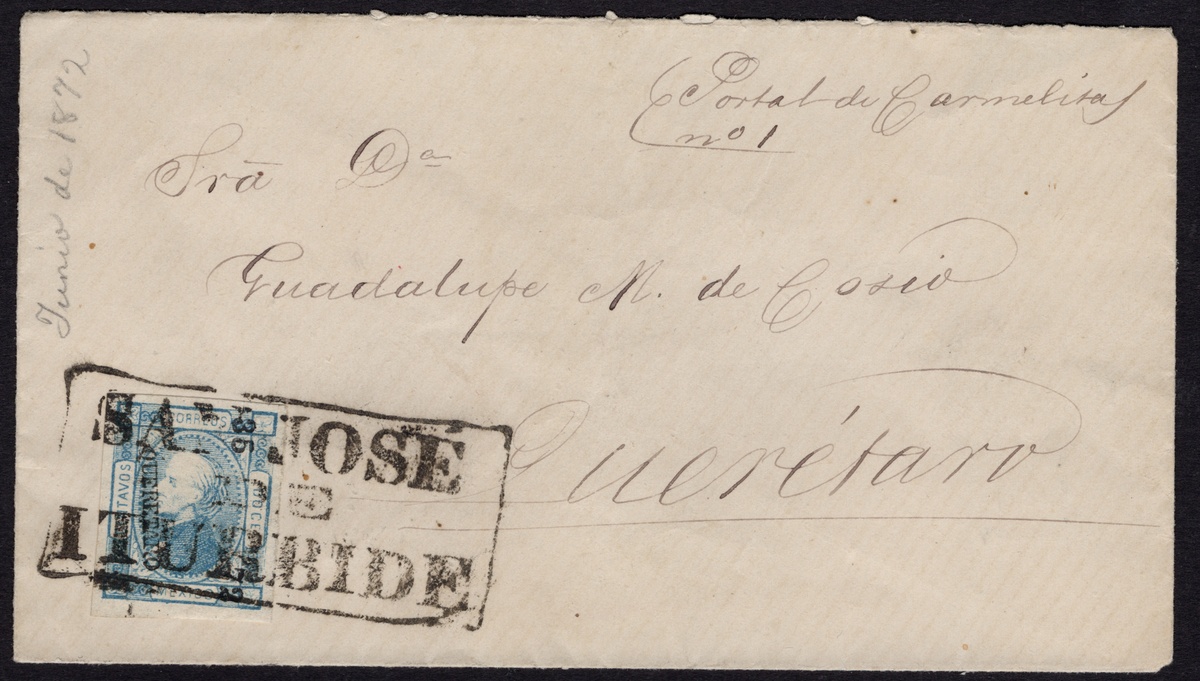 Junio de 1872
Portal de Carmelitas
nº 1
Srã Dª
Guadalupe M. de Cosio
Querétaro
SAN JOSE
DE
ITURBIDE
CORREOS
QUERETARO
MEXICO